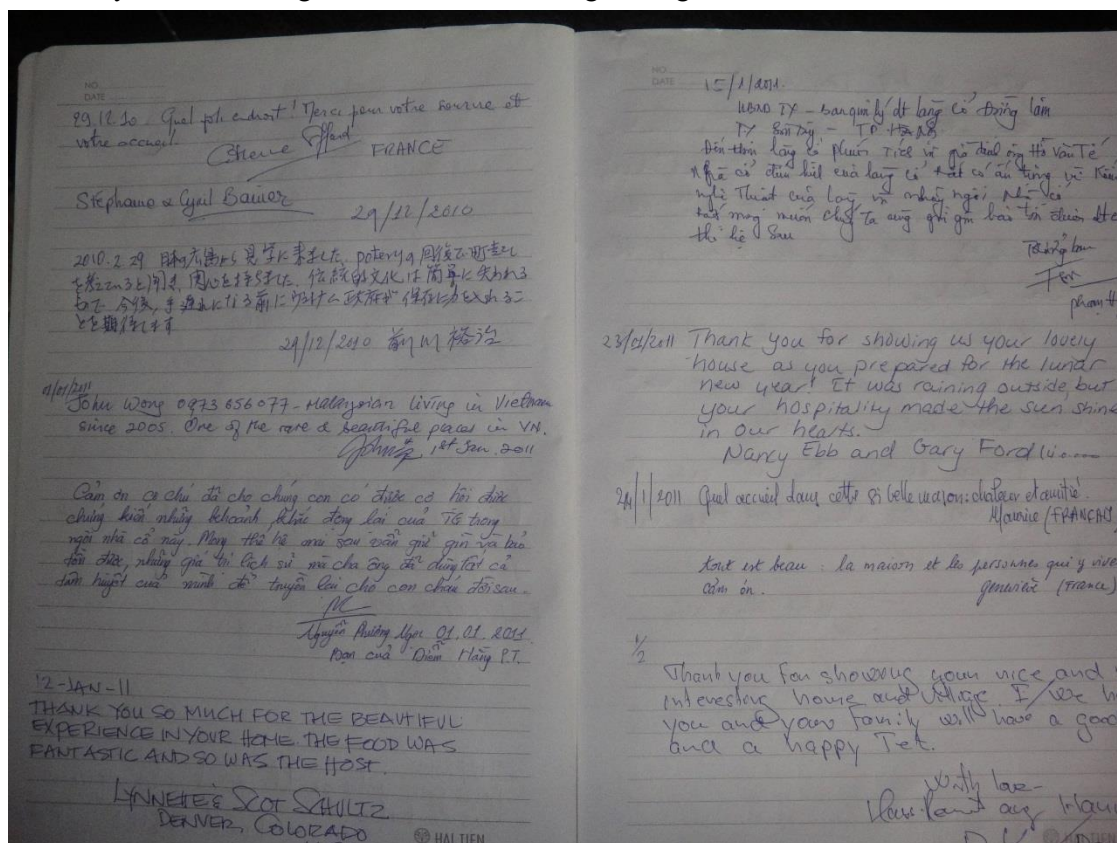 NO.
DATE
29.12.10. Quel joli endroit! Merci pour votre sourire et
votre accueil.
FRANCE
Stéphane & Cyril
29/12/2010
見学に来ました。 potery
と聞き、関心を持ちました。伝統的文化は簡単に失われる
ので、今後、手遅れになる前に 政府が保存に力を入れるこ
とを期待します
29/12/2010 前川 裕治
1/01/2011
John Wong 0973 656 077 - Malaysian living in Vietnam
since 2005. One of the rare & beautiful places in VN.
John 1st Jan. 2011
Cảm ơn cô chú đã cho chúng con có được cơ hội được
chứng kiến những khoảnh khắc đọng lại của TG trong
ngôi nhà cổ này. Mong thế hệ mai sau vẫn giữ gìn và bảo
tồn được những giá trị lịch sử mà cha ông đã dùng tất cả
tâm huyết của mình để truyền lại cho con cháu đời sau.
Nguyễn Phương 01.01.2011
Bạn của Diễm Hằng P.T.
12-JAN-11
THANK YOU SO MUCH FOR THE BEAUTIFUL
EXPERIENCE IN YOUR HOME. THE FOOD WAS
FANTASTIC AND SO WAS THE HOST.
LYNNETTE & SCOT SCHULTZ
DENVER, COLORADO
HAI TIEN
NO.
DATE
15/1/2011.
UBND TX - Ban quản lý dt làng cổ Đường lâm
TX Sơn Tây - TP Hà Nội
Đến thăm làng cổ phước Tích và gia đình ông Hồ Văn Tế
nghệ Thuật của làng và những ngôi nhà cổ
thế hệ sau
Đường lâm
23/01/2011 Thank you for showing us your lovely
house as you prepared for the lunar
new year! It was raining outside, but
your hospitality made the sun shine
in our hearts.
Nancy Ebb and Gary Ford
24/1/2011 Quel accueil dans cette si belle maison: chaleur et amitié.
Maurice (FRANCAIS)
tout est beau: la maison et les personnes qui y vive
Cảm ơn. Geneviève (France)
1/2
Thank you for showing your nice and
interesting home and village I/we
you and your family will have a good
and a happy Tet.
With love
HAI TIEN